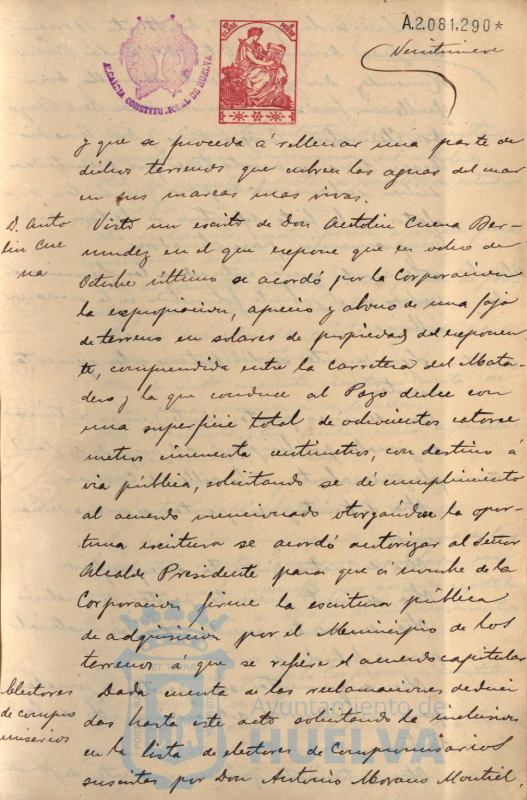 A.2.081.290*
Veintinueve
ALCALDIA CONSTITUCIONAL DE HUELVA
y que se proceda á rellenar una parte de
dichos terrenos que cubren las aguas del mar
en sus mareas mas vivas.
D. Anto
lin Cue
na
Visto un escrito de Don Antolin Cuena Ber-
mudez en el que expone que en ocho de
Octubre último se acordó por la Corporacion
la expropiacion, aprecio y abono de una faja
de terreno en solares de propiedad del exponen-
te, comprendida entre la carretera del Mata-
dero y la que conduce al Pozo dulce con
una superficie total de ochocientos catorse
metros cincuenta centimetros, con destino á
via pública, solicitando se dé cumplimiento
al acuerdo mencionado otorgándose la opor-
tuna escritura se acordó autorizar al Señor
Alcalde Presidente para que á nombre de la
Corporacion firme la escritura pública
de adquisicion por el Municipio de los
terrenos á que se refiere el acuerdo capitular
Electores
de compro
misarios
Dada cuenta de las reclamaciones deduci
das hasta este acto solicitando la inclusion
en la lista de electores de Compromisarios
suscritas por Don Antonio Morano Montiel,
Ayuntamiento de
HUELVA